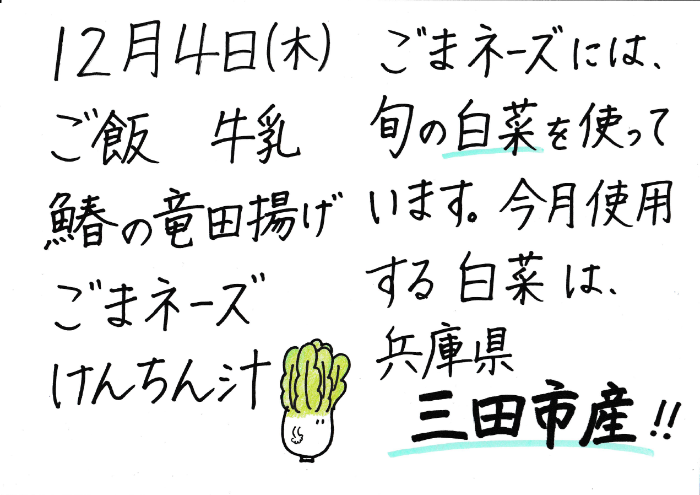 12月4日(木)
ご飯　牛乳
鰆の竜田揚げ
ごまネーズ
けんちん汁
ごまネーズには、
旬の白菜を使って
います。今月使用
する白菜は、
兵庫県
三田市産!!